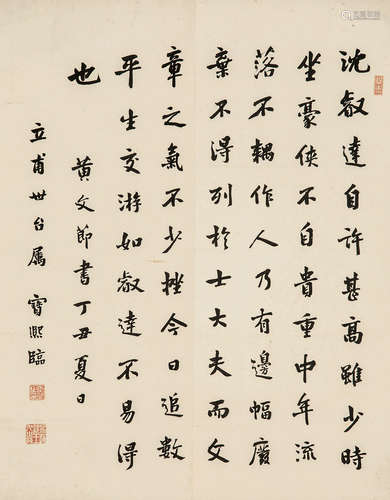 沈叔達自許甚高雖少時
坐豪俠不自貴重中年流
落不耦作人乃有邊幅廢
棄不得列於士大夫而文
章之氣不少挫今日追數
平生交游如叔達不易得
也
黃文節書丁丑夏日
立甫世台屬 寶熙臨